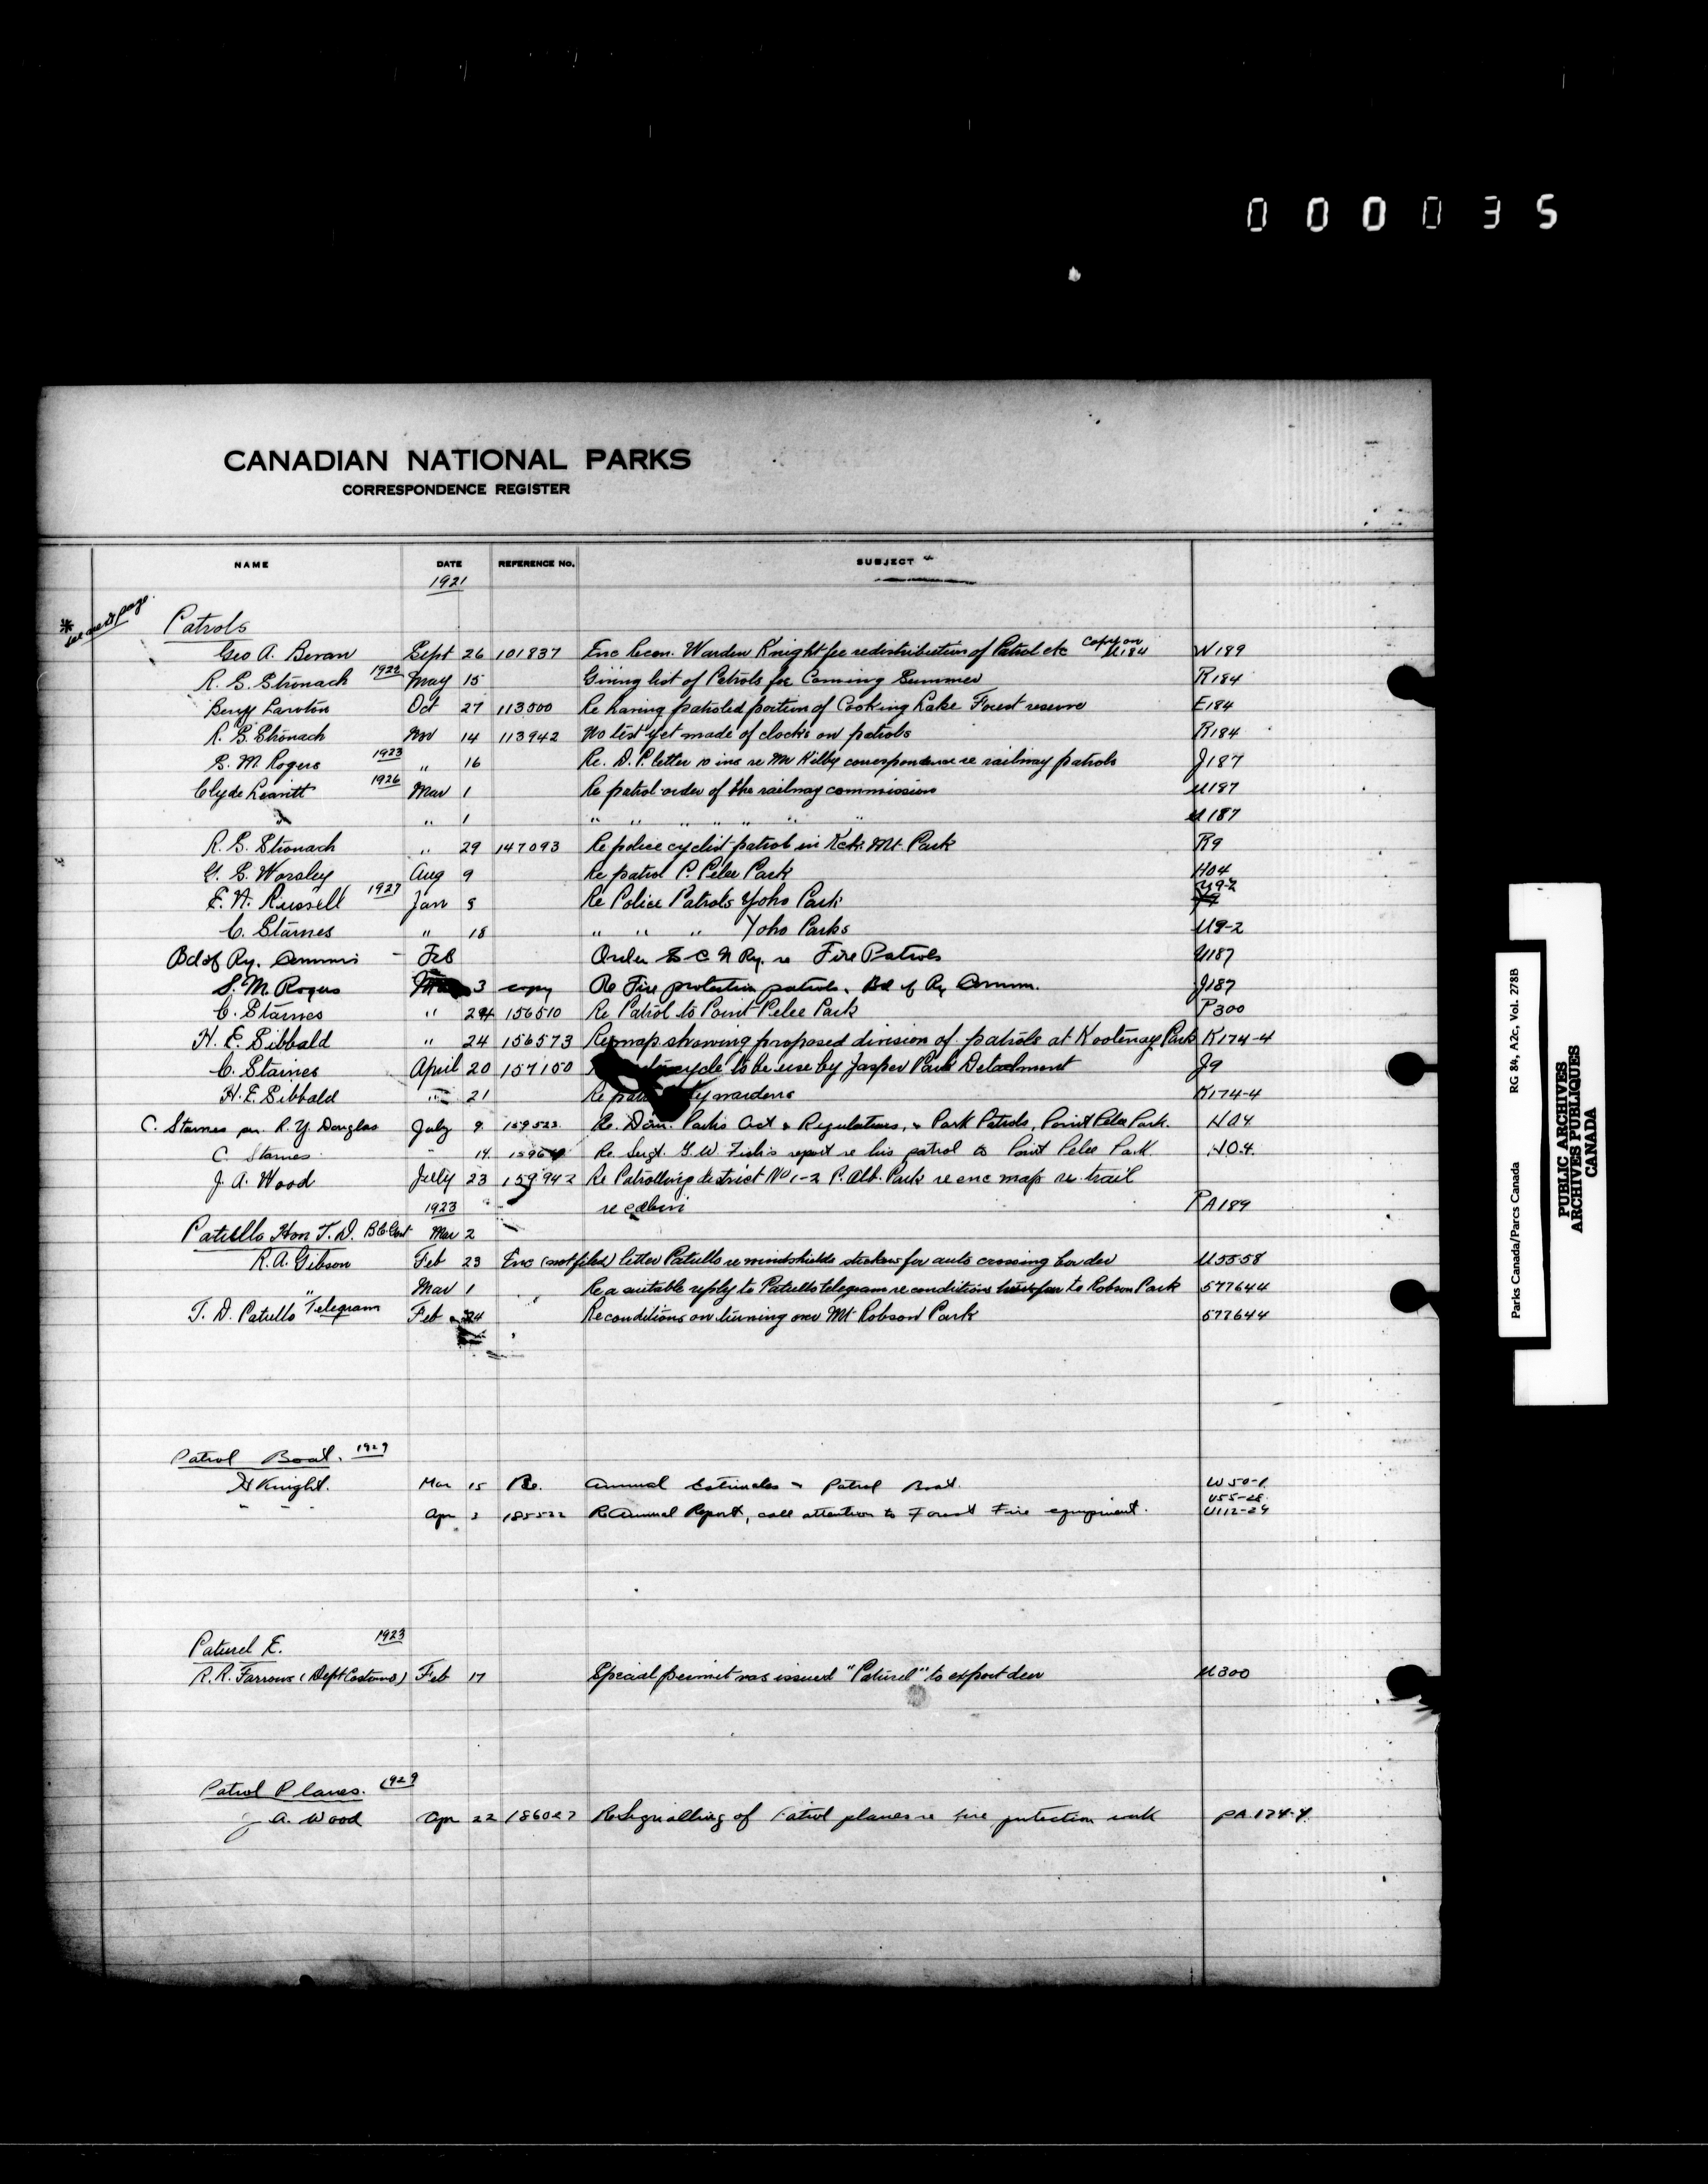 000035
CANADIAN NATIONAL PARKS
CORRESPONDENCE REGISTER
NAME DATE REFERENCE NO. SUBJECT
1921
* see next page.
Patrols
Geo A. Bevan Sept 26 101837 Enc Warden Knight redistribution of Patrol etc Copy on U184 W189
R. S. Stronach 1922 May 15 Giving list of Patrols for Coming Summer R184
Lawton Oct 27 113500 Re having patroled portion of Cooking Lake Forest reserve E184
R. S. Stronach Nov 14 113942 No test yet made of clocks on patrols R184
S. M. Rogers 1923 " 16 Re. D.P. letter re Mr Kilby correspondence re railway patrols J187
Clyde Leavitt 1926 Mar 1 Re patrol order of the railway commission U187
" " 1 " " " " " " " U187
R. S. Stronach " 29 147093 Re police cyclist patrol in Rck. Mt. Park R9
G. S. Worsley Aug 9 Re patrol P. Pelee Park H04
F. A. Russell 1927 Jan 5 Re Police Patrols Yoho Park Y9-2
C. Starnes " 18 " " " Yoho Parks U9-2
Bd of Ry. Commis - Feb Order C N Ry. re Fire Patrols U187
S. M. Rogers 3 copy Re Fire protection patrols, Bd of Ry Comm. J187
C. Starnes " 24 156510 Re Patrol to Point Pelee Park P300
H. E. Sibbald " 24 156573 Re map showing proposed division of patrols at Kootenay Park K174-4
C. Starnes April 20 157150 cycle to be use by Jasper Park Detachment J9
H. E. Sibbald " 21 Re by wardens K174-4
C. Starnes per R. Y. Douglas July 9 159523 Re. Dom. Parks Act & Regulations, & Park Patrols, Point Pelee Park. H04
C. Starnes " 14 Re Sergt. G. W. report re his patrol to Point Pelee Park H04.
J. A. Wood July 23 159942 Re Patrolling district No 1-2 P. Alb. Park re enc map re trail
1923 re cabin PA189
Patullo Hon T. D. B.C. Govt Mar 2
R. A. Gibson Feb 23 Enc (not filed) letter Patullo re windshields stickers for auto crossing border U55-58
" Mar 1 Re a suitable reply to Patullo telegram re conditions transfer to Robson Park 577644
T. D. Patullo Telegram Feb 24 Re conditions on turning over Mt Robson Park 577644
Patrol Boat. 1929
Knight. Mar 15 Re. Annual Estimates - Patrol Boat. W50-1
U55-28.
" " Apr 3 185522 Re Annual Report, call attention to Forest Fire equipment. U112-24
Paturel E. 1923
R. R. Farrow (Dept Customs) Feb 17 Special permit was issued "Paturel" to export deer U300
Patrol Planes. 1929
J. A. Wood Apr 22 186027 Re Signalling of Patrol planes re fire protection work PA.174-4.
Parks Canada/Parcs Canada RG 84, A2c, Vol. 278B
PUBLIC ARCHIVES
ARCHIVES PUBLIQUES
CANADA